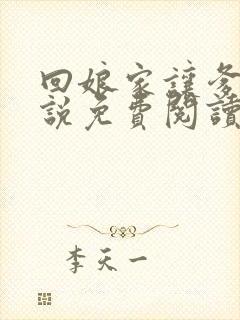 回娘家讓爹
說免費閱讀
李天一